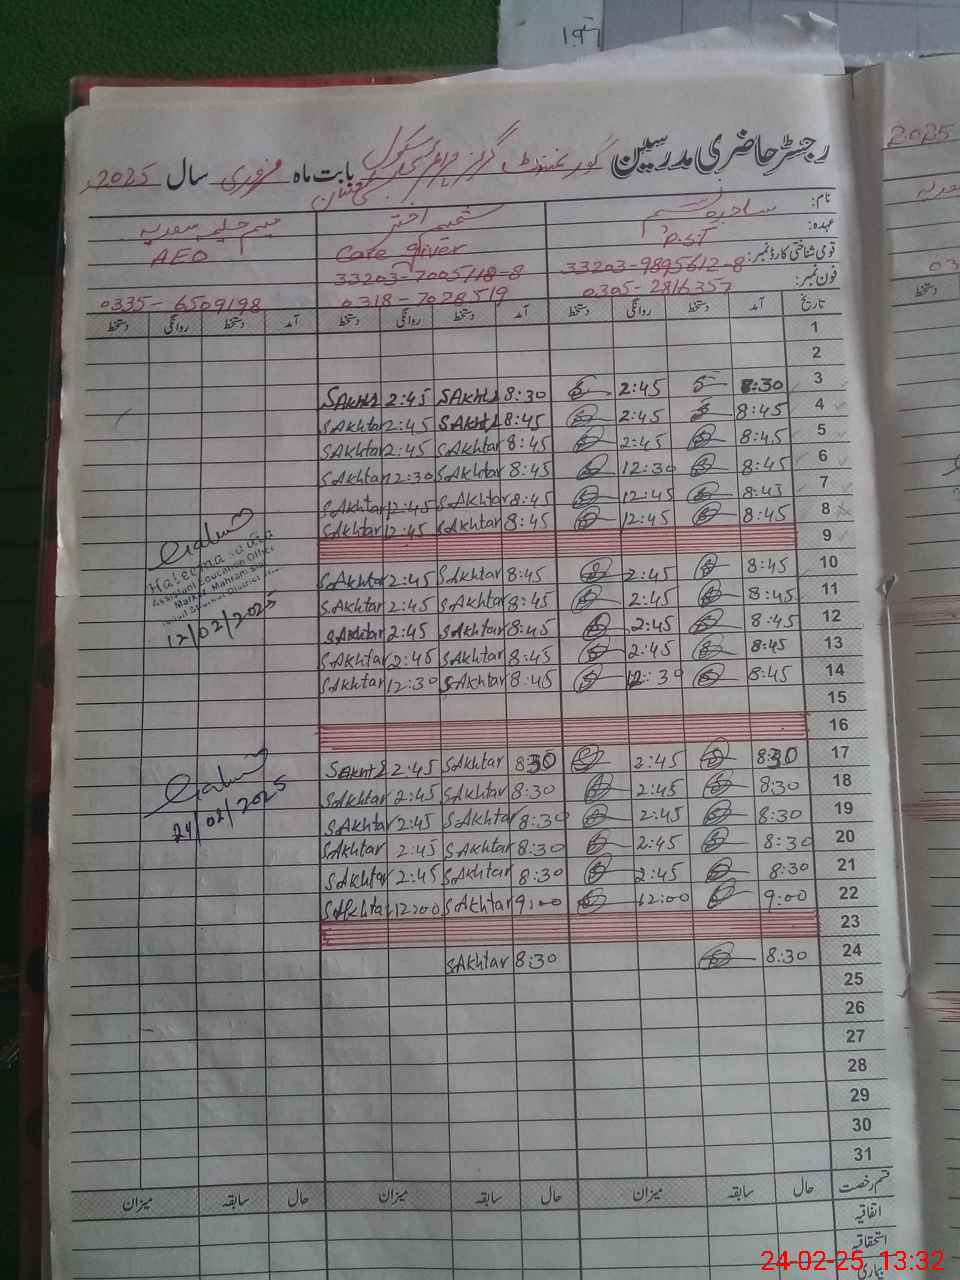 رجسٹر حاضری مدرسین گورنمنٹ گرلز پرائمری سکول بابت ماہ فروری سال 2025
نام: ساجدہ نسیم شمیم اختر میم حلیمہ سعدیہ
عہدہ: P.ST Care giver AEO
قومی شناختی کارڈ نمبر: 33203-9895612-8 33203-7005118-8
فون نمبر: 0305-2816357 0318-7028519 0335-6509198
تاریخ آمد دستخط روانگی دستخط آمد دستخط روانگی دستخط آمد دستخط روانگی دستخط
1
2
3 8:30 2:45 8:30 SAkhtr 2:45 SAkhtr
4 8:45 2:45 8:45 SAkhtr 2:45 SAkhtar
5 8:45 2:45 8:45 SAkhtar 2:45 SAkhtar
6 8:45 12:30 8:45 SAkhtar 12:30 SAkhtar
7 8:45 12:45 8:45 SAkhtar 12:45 SAkhtar
8 8:45 12:45 8:45 SAkhtar 12:45 SAkhtar
9
10 8:45 2:45 8:45 SAkhtar 2:45 SAkhtar
11 8:45 2:45 8:45 SAkhtar 2:45 SAkhtar
12 8:45 2:45 8:45 SAkhtar 2:45 SAkhtar
13 8:45 2:45 8:45 SAkhtar 2:45 SAkhtar
14 8:45 12:30 8:45 SAkhtar 12:30 SAkhtar
15
16
17 8:30 2:45 8:30 SAkhtar 2:45 SAkhtr
18 8:30 2:45 8:30 SAkhtar 2:45 SAkhtar
19 8:30 2:45 8:30 SAkhtar 2:45 SAkhtar
20 8:30 2:45 8:30 SAkhtar 2:45 SAkhtar
21 8:30 2:45 8:30 SAkhtar 2:45 SAkhtar
22 9:00 12:00 9:00 SAkhtar 12:00 SAkhtar
23
24 8:30 8:30 SAkhtar
25
26
27
28
29
30
31
قسم رخصت حال سابقہ میزان حال سابقہ میزان حال سابقہ میزان
اتفاقیہ
استحقاقیہ
بیماری
Haleema Sadia
Assistant Education Officer
12/02/2025
24/02/2025
2025
24-02-25 13:32